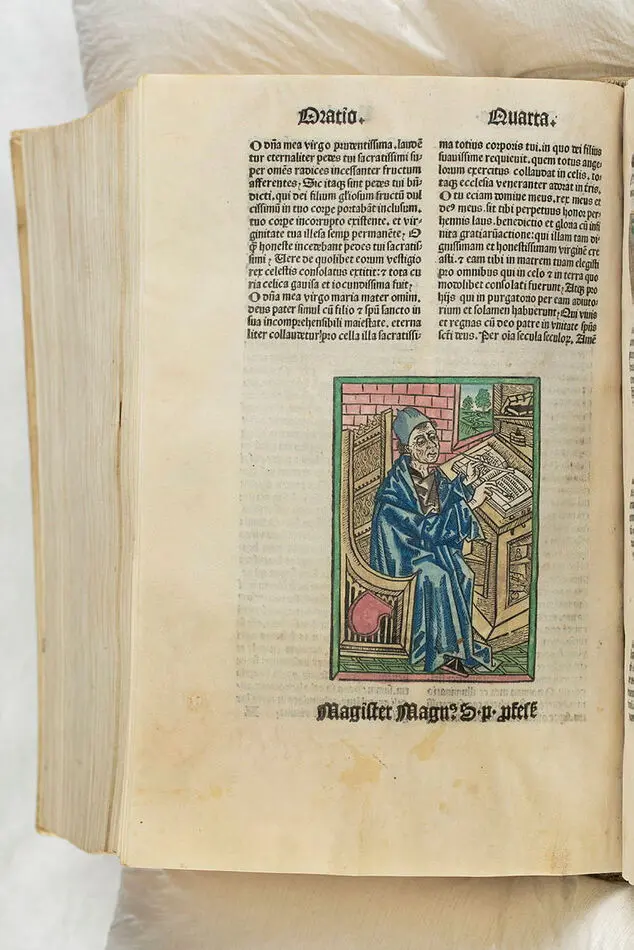 Oratio.
Quarta.
O dña mea virgo prudentissima, laudẽ
tur eternaliter pedes tui sacratissimi su⸗
per om̃es radices incessanter fructum
afferentes: Sic itaq̃ sint pedes tui bñ⸗
dicti, qui dei filium gl̃iosum fructũ dul
cissimũ in tuo corpe portabãt inclusum,
tuo corpe incorrupto existente, et vir⸗
ginitate tua illesa semp permanẽte: O
q̃ honeste incedebant pedes tui sacratis
simi: Uere de quolibet eorum vestigio
rex celestis consolatus extitit: ⁊ tota cu
ria celica gauisa et iocundissima fuit:
O dña mea virgo maria mater omĩm,
deus pater simul cũ filio ⁊ sp̃u sancto in
sua incomprehensibili maiestate, eterna
liter collaudetur pro cella illa sacratissi⸗
ma totius corporis tui, in quo dei filius
suauissime requieuit, quem totus ange⸗
lorum exercitus collaudat in celis, ⁊ to⸗
ta q̃ ecclesia veneranter adorat in tr̃is.
O tu eciam domine meus, rex meus et
de⁹ meus, sit tibi perpetuus honor per⸗
hennis laus, benedictio et gloria cũ infi
nita gratiarũactione: qui illam tam di⸗
gnissimam et honestissimam virginẽ cre
asti, ⁊ eam tibi in matrem tuam elegisti
pro omnibus qui in celo ⁊ in terra quo
modolibet consolati fuerunt: Atq̃ pro
hijs qui in purgatorio per eam adiuto⸗
rium et solamen habuerunt: Qui viuis
et regnas cũ deo patre in vnitate sp̃us
scti deus. Per oĩa secula seculoꝝ, Amẽ
Magister Magn⁹ S. p.